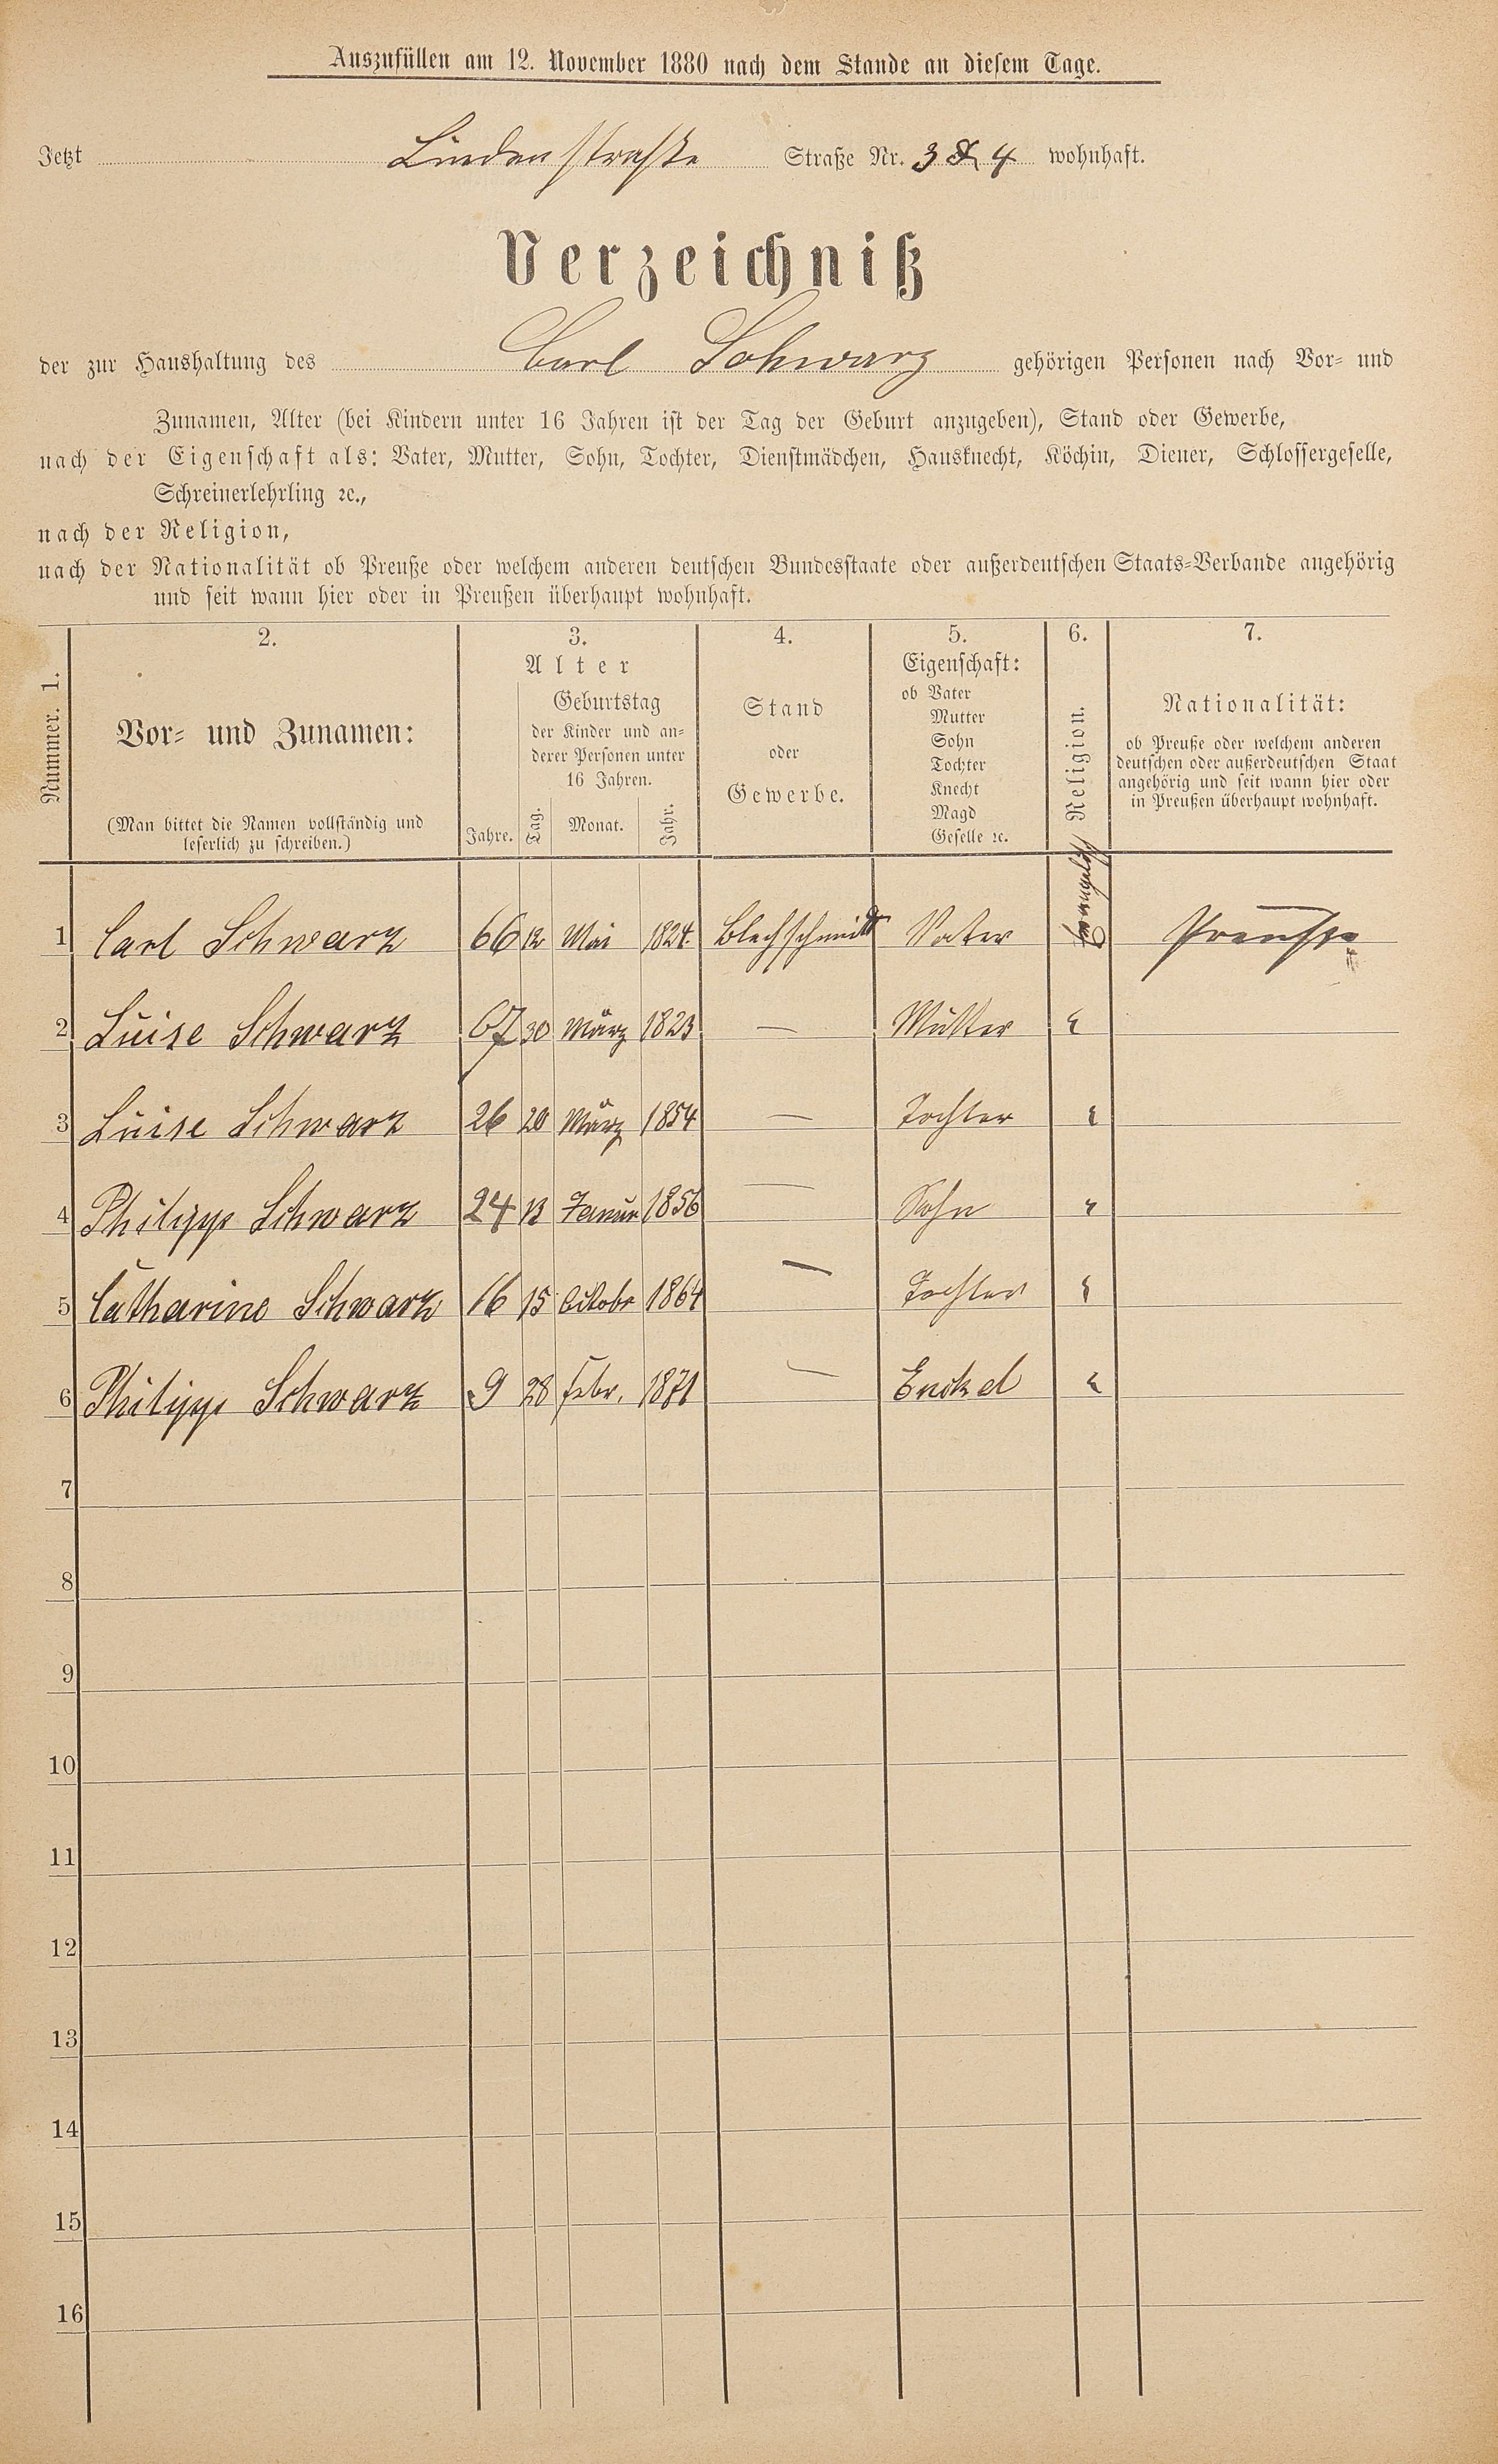 Auszufüllen am 12. November 1880 nach dem Stande an diesem Tage.
Jetzt Lindenstraße Straße Nr. 3 & 4 wohnhaft.
Verzeichniß
der zur Haushaltung des Carl Schwarz gehörigen Personen nach Vor- und
Zunamen, Alter (bei Kindern unter 16 Jahren ist der Tag der Geburt anzugeben), Stand oder Gewerbe,
nach der Eigenschaft als: Vater, Mutter, Sohn, Tochter, Dienstmädchen, Hausknecht, Köchin, Diener, Schlossergeselle,
Schreinerlehrling ꝛc.,
nach der Religion,
nach der Nationalität ob Preuße oder welchem anderen deutschen Bundesstaate oder außerdeutschen Staats-Verbande angehörig
und seit wann hier oder in Preußen überhaupt wohnhaft.
Nummer. 1.
2.
Vor- und Zunamen:
(Man bittet die Namen vollständig und
leserlich zu schreiben.)
3.
Alter
Jahre.
Geburtstag
der Kinder und an-
derer Personen unter
16 Jahren.
Tag. Monat. Jahr.
4.
Stand
oder
Gewerbe.
5.
Eigenschaft:
ob Vater
Mutter
Sohn
Tochter
Knecht
Magd
Geselle ꝛc.
6.
Religion.
7.
Nationalität:
ob Preuße oder welchem anderen
deutschen oder außerdeutschen Staat
angehörig und seit wann hier oder
in Preußen überhaupt wohnhaft.
1 Carl Schwarz 66 12 Mai 1824. Blechschmidt Vater Preuße
2 Luise Schwarz 67 30 März 1823 — Mutter "
3 Luise Schwarz 26 20 März 1854 — Tochter "
4 Philipp Schwarz 24 13 Januar 1856 — Sohn "
5 Catharine Schwarz 16 15 Octobr 1864 — Tochter "
6 Philipp Schwarz 9 28 Febr. 1871 — Enckel "
7
8
9
10
11
12
13
14
15
16